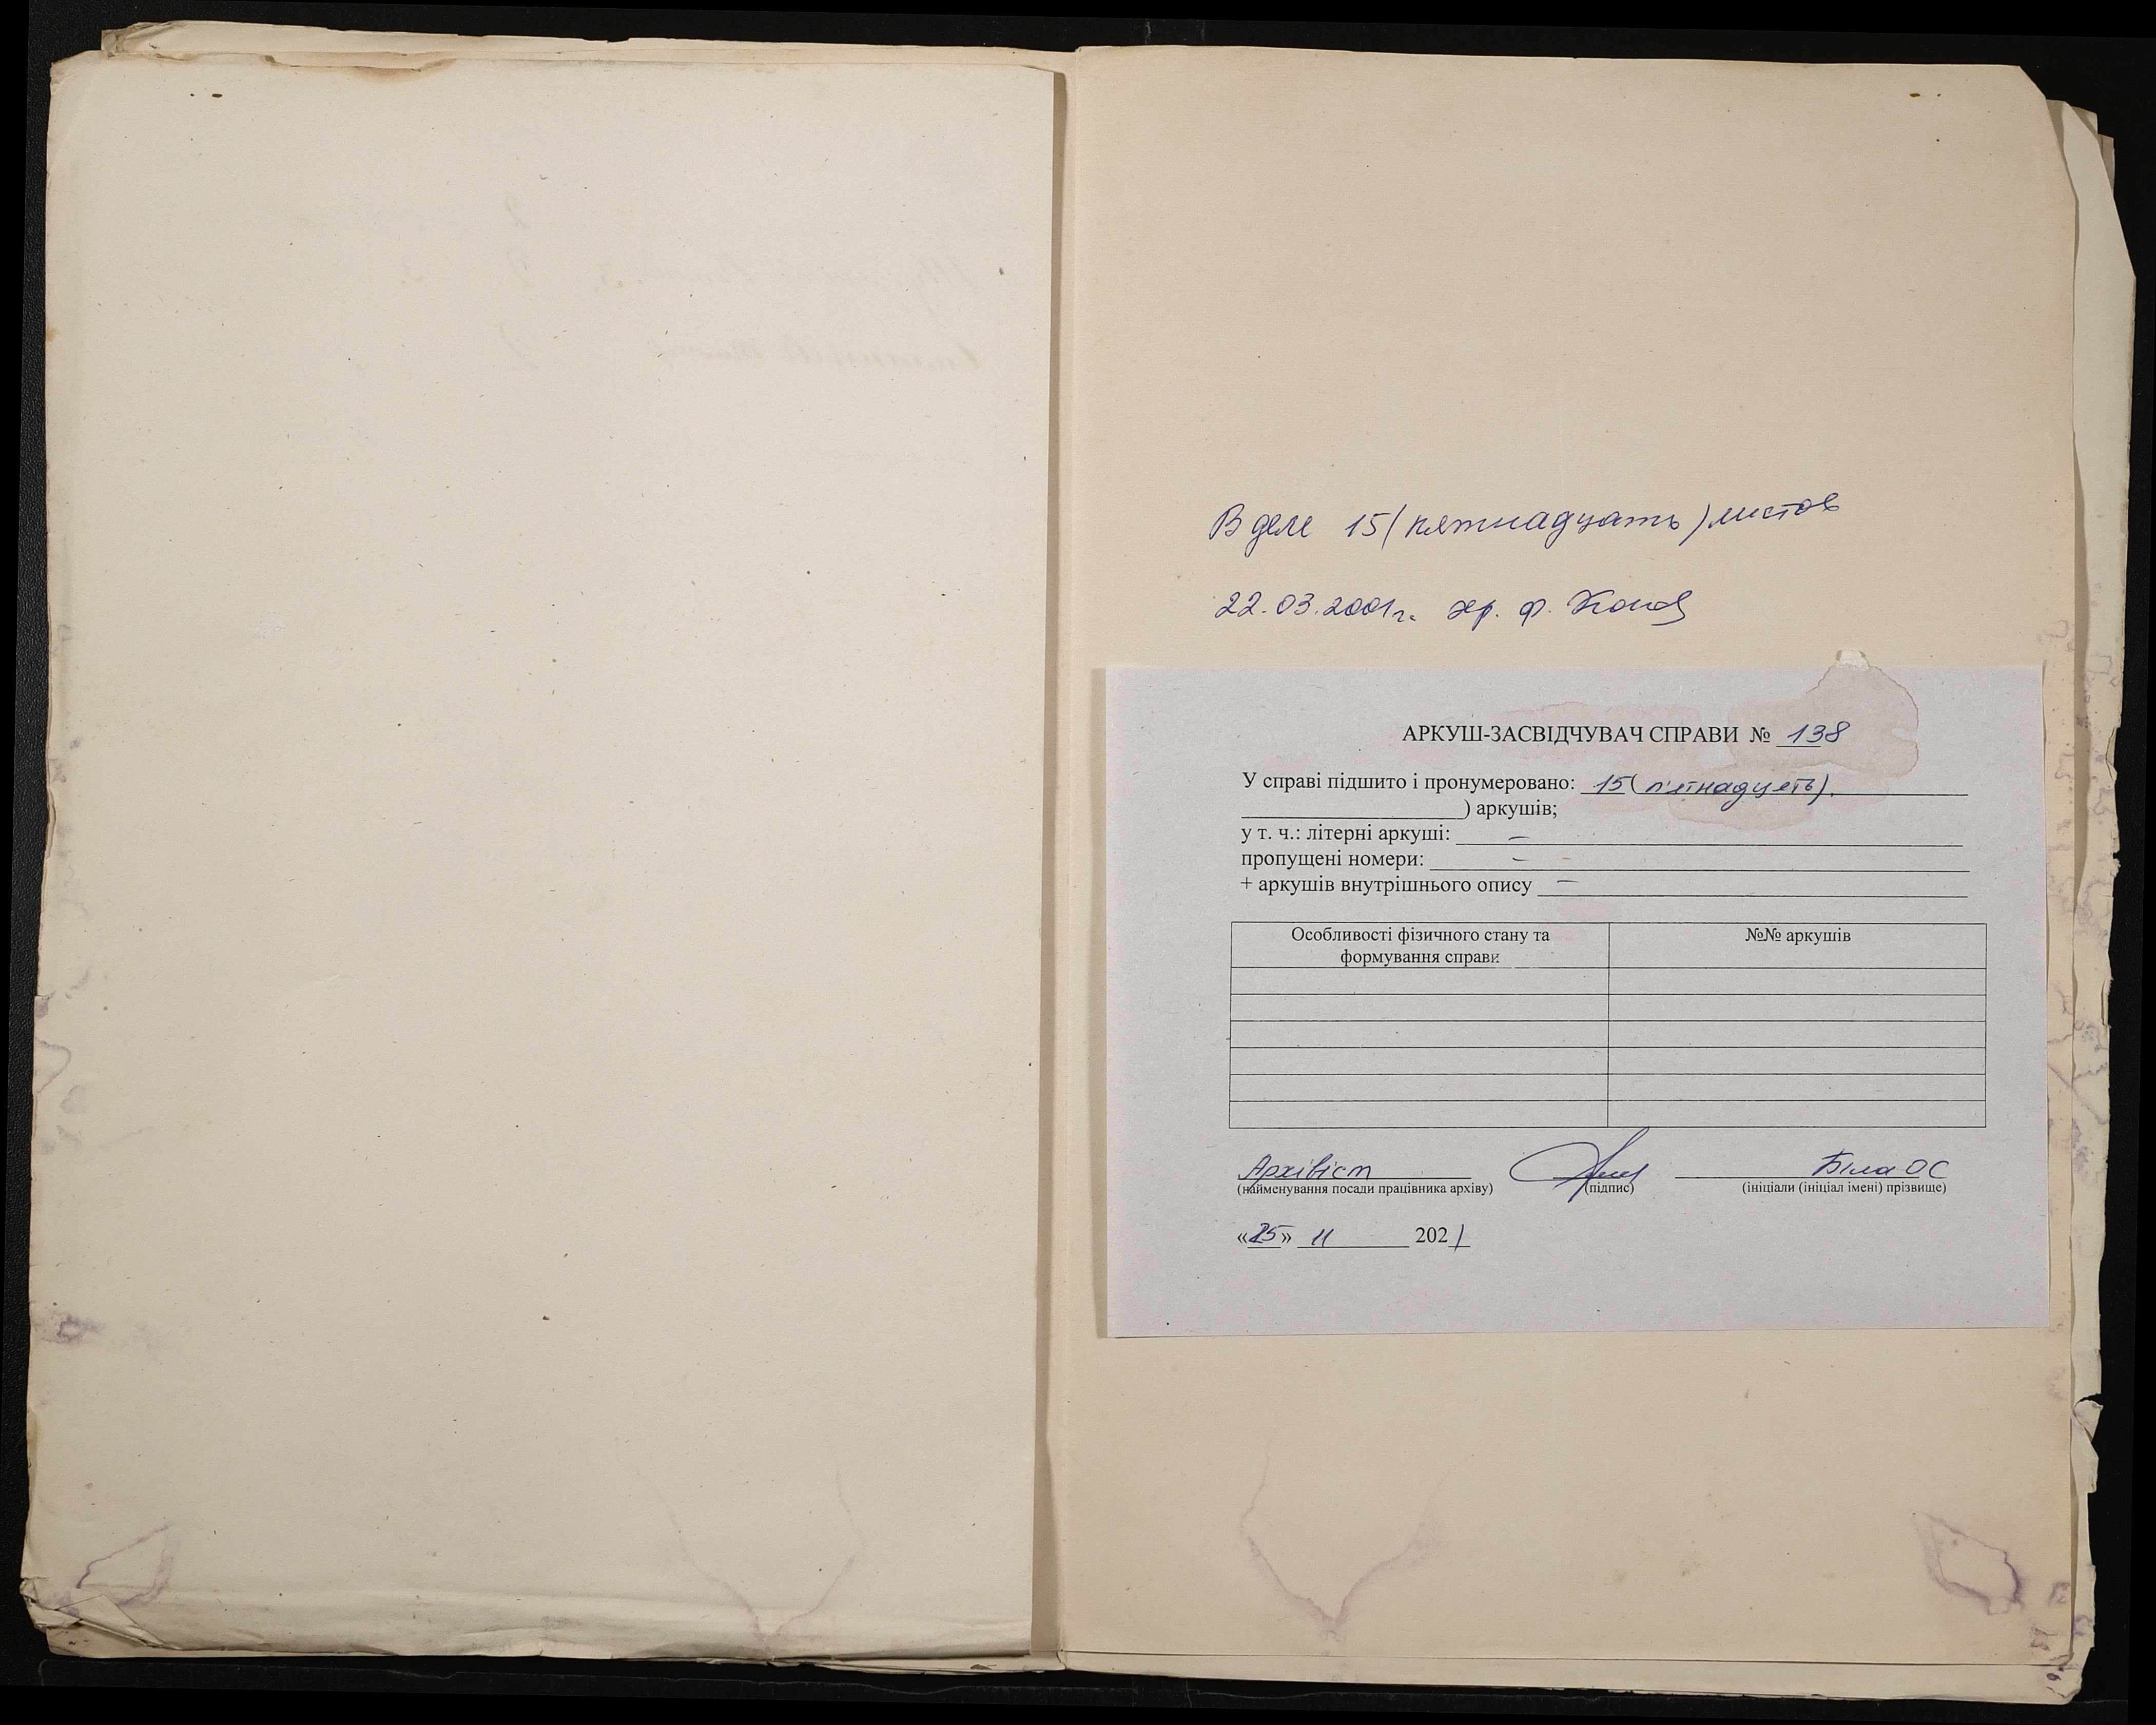 В деле 15 (пятнадцать) листов
22.03.2001г. хр. ф.
АРКУШ-ЗАСВІДЧУВАЧ СПРАВИ № 138
У справі підшито і пронумеровано: 15 (п'ятнадцять)
) аркушів;
у т. ч.: літерні аркуші: –
пропущені номери: –
+ аркушів внутрішнього опису –
Особливості фізичного стану та
формування справи
№№ аркушів
Архівіст Біла ОС
(найменування посади працівника архіву) (підпис) (ініціали (ініціал імені) прізвище)
«25» 11 2021